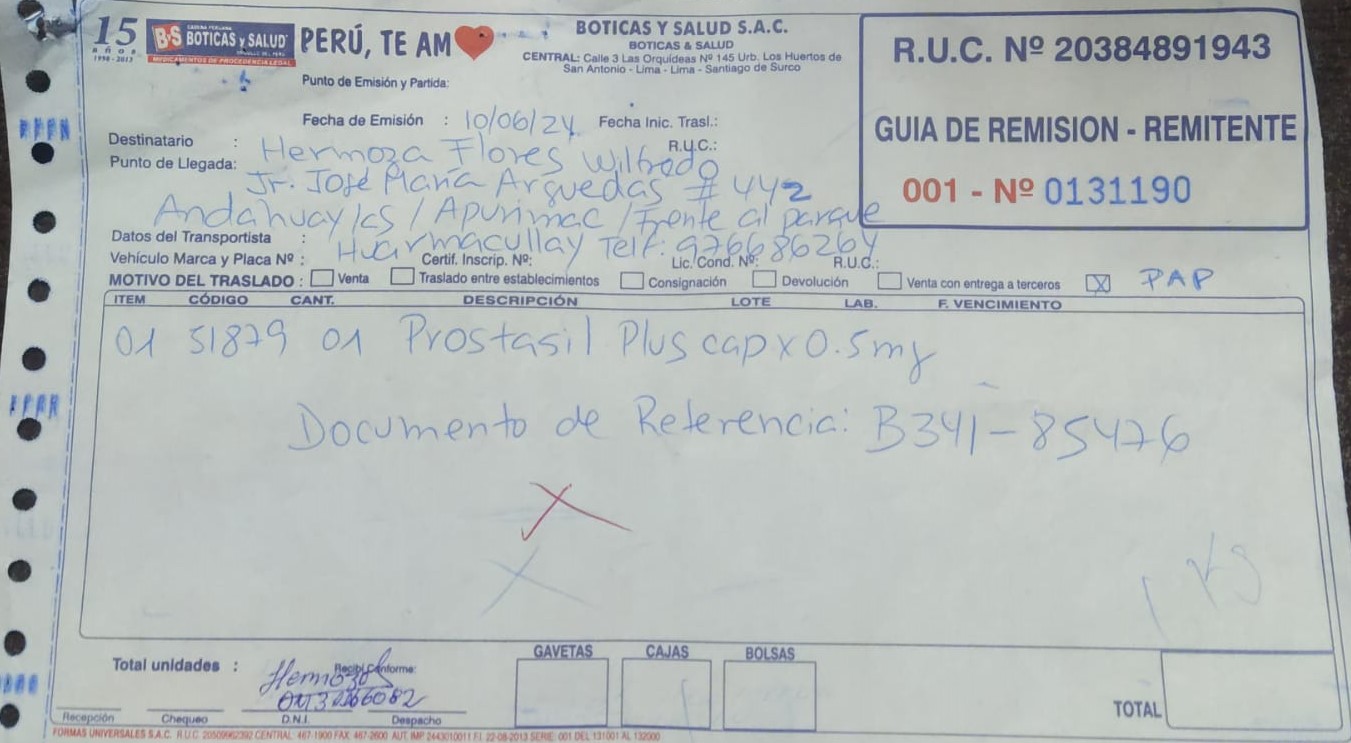 15 años 1998 - 2013
CADENA PERUANA
B·S BOTICAS y SALUD
MEDICAMENTOS DE PROCEDENCIA LEGAL
PERÚ, TE AM
BOTICAS Y SALUD S.A.C.
BOTICAS & SALUD
CENTRAL: Calle 3 Las Orquídeas Nº 145 Urb. Los Huertos de
San Antonio - Lima - Lima - Santiago de Surco
R.U.C. Nº 20384891943
GUIA DE REMISION - REMITENTE
001 - Nº 0131190
Punto de Emisión y Partida:
Fecha de Emisión : 10/06/24 Fecha Inic. Trasl.:
Destinatario : Hermoza Flores Wilfredo R.U.C.:
Punto de Llegada: Jr. José María Arguedas # 442
Andahuaylas / Apurimac / Frente al parque
Datos del Transportista : Huarmacullay Telf: 976686264
Vehículo Marca y Placa Nº : Certif. Inscrip. Nº: Lic. Cond. Nº: R.U.C.:
MOTIVO DEL TRASLADO : Venta Traslado entre establecimientos Consignación Devolución Venta con entrega a terceros X PAP
ITEM CÓDIGO CANT. DESCRIPCIÓN LOTE LAB. F. VENCIMIENTO
01 51879 01 Prostasil Plus cap x 0.5mg
Documento de Referencia: B341-85476
Total unidades : Recibí Conforme:
GAVETAS CAJAS BOLSAS
TOTAL
Recepción Chequeo D.N.I. Despacho
FORMAS UNIVERSALES S.A.C. R.U.C. 20509962392 CENTRAL: 467-1900 FAX: 467-2600 AUT. IMP 2443010011 F.I. 22-08-2013 SERIE: 001 DEL 131001 AL 132000